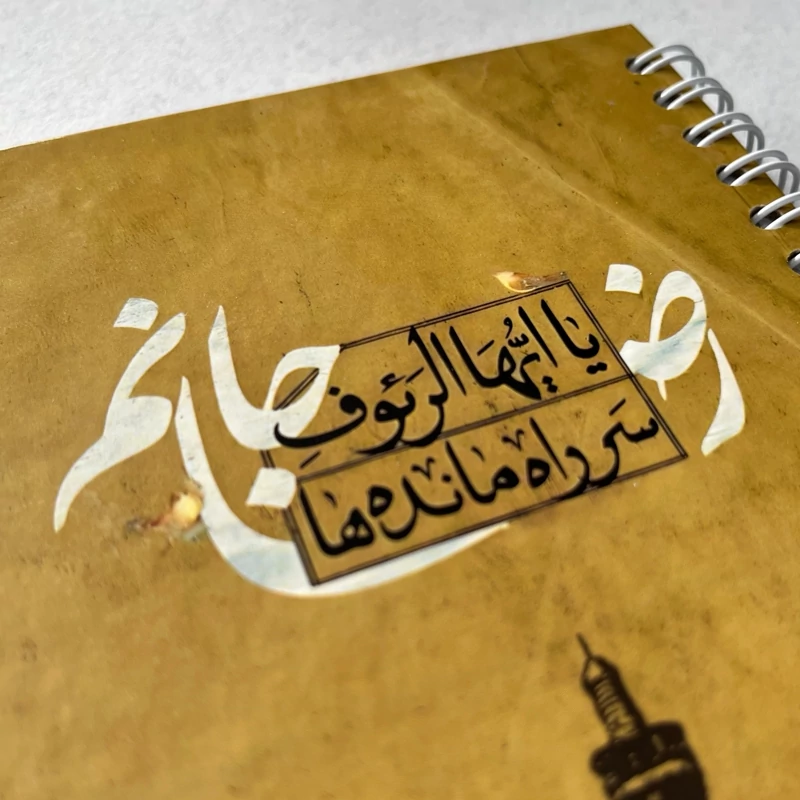 رضا جانم
یا ایُّهَا الرَئوفِ
سَرِ راه مانده ها